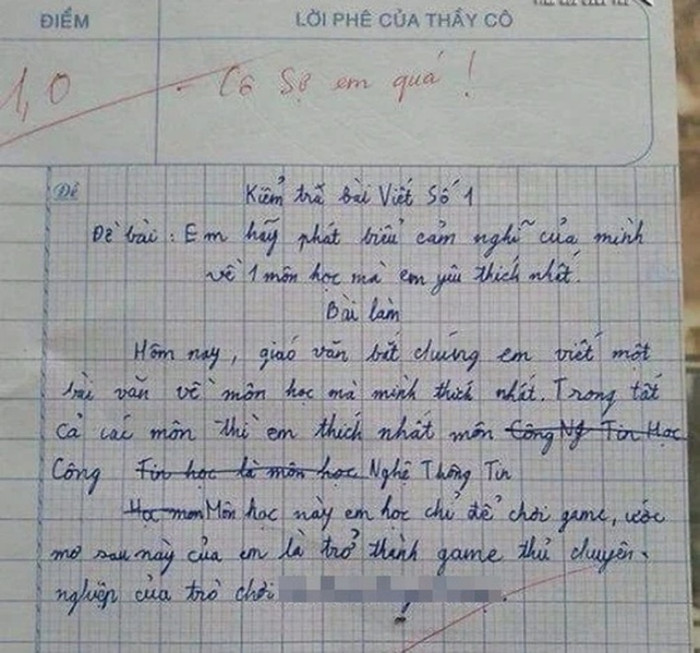 ĐIỂM
LỜI PHÊ CỦA THẦY CÔ
1,0
- Cô Sợ em quá !
Đề
Kiểm tră bài Viết Số 1
Đề bài : Em hãy phát biểu cảm nghĩ của mình
về 1 môn học mà em yêu thích nhất.
Bài làm
Hôm nay, giáo văn bắt chúng em viết một
bài văn về môn học mà mình thích nhất. Trong tất
cả các môn thì em thích nhất môn Công Ng Tin Học
Công Tin học là môn học Nghệ Thông Tin
Học môn Môn học này em học chỉ để chơi game, ước
mơ sau này của em là trở thành game thủ chuyên
nghiệp của trò chơi